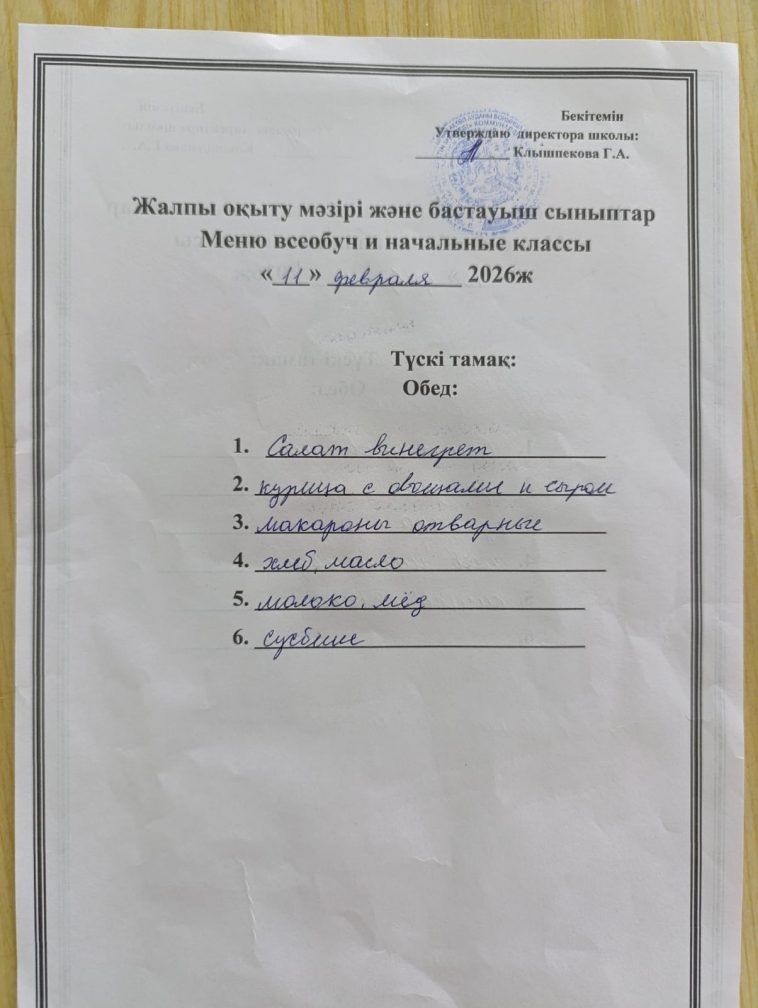 Бекітемін
Утверждаю директора школы:
Клышпекова Г.А.
Жалпы оқыту мәзірі және бастауыш сыныптар
Меню всеобуч и начальные классы
«11» февраля 2026ж
Түскі тамақ:
Обед:
1. Салат винегрет
2. курица с овощами и сыром
3. макароны отварные
4. хлеб, масло
5. молоко, мёд
6.